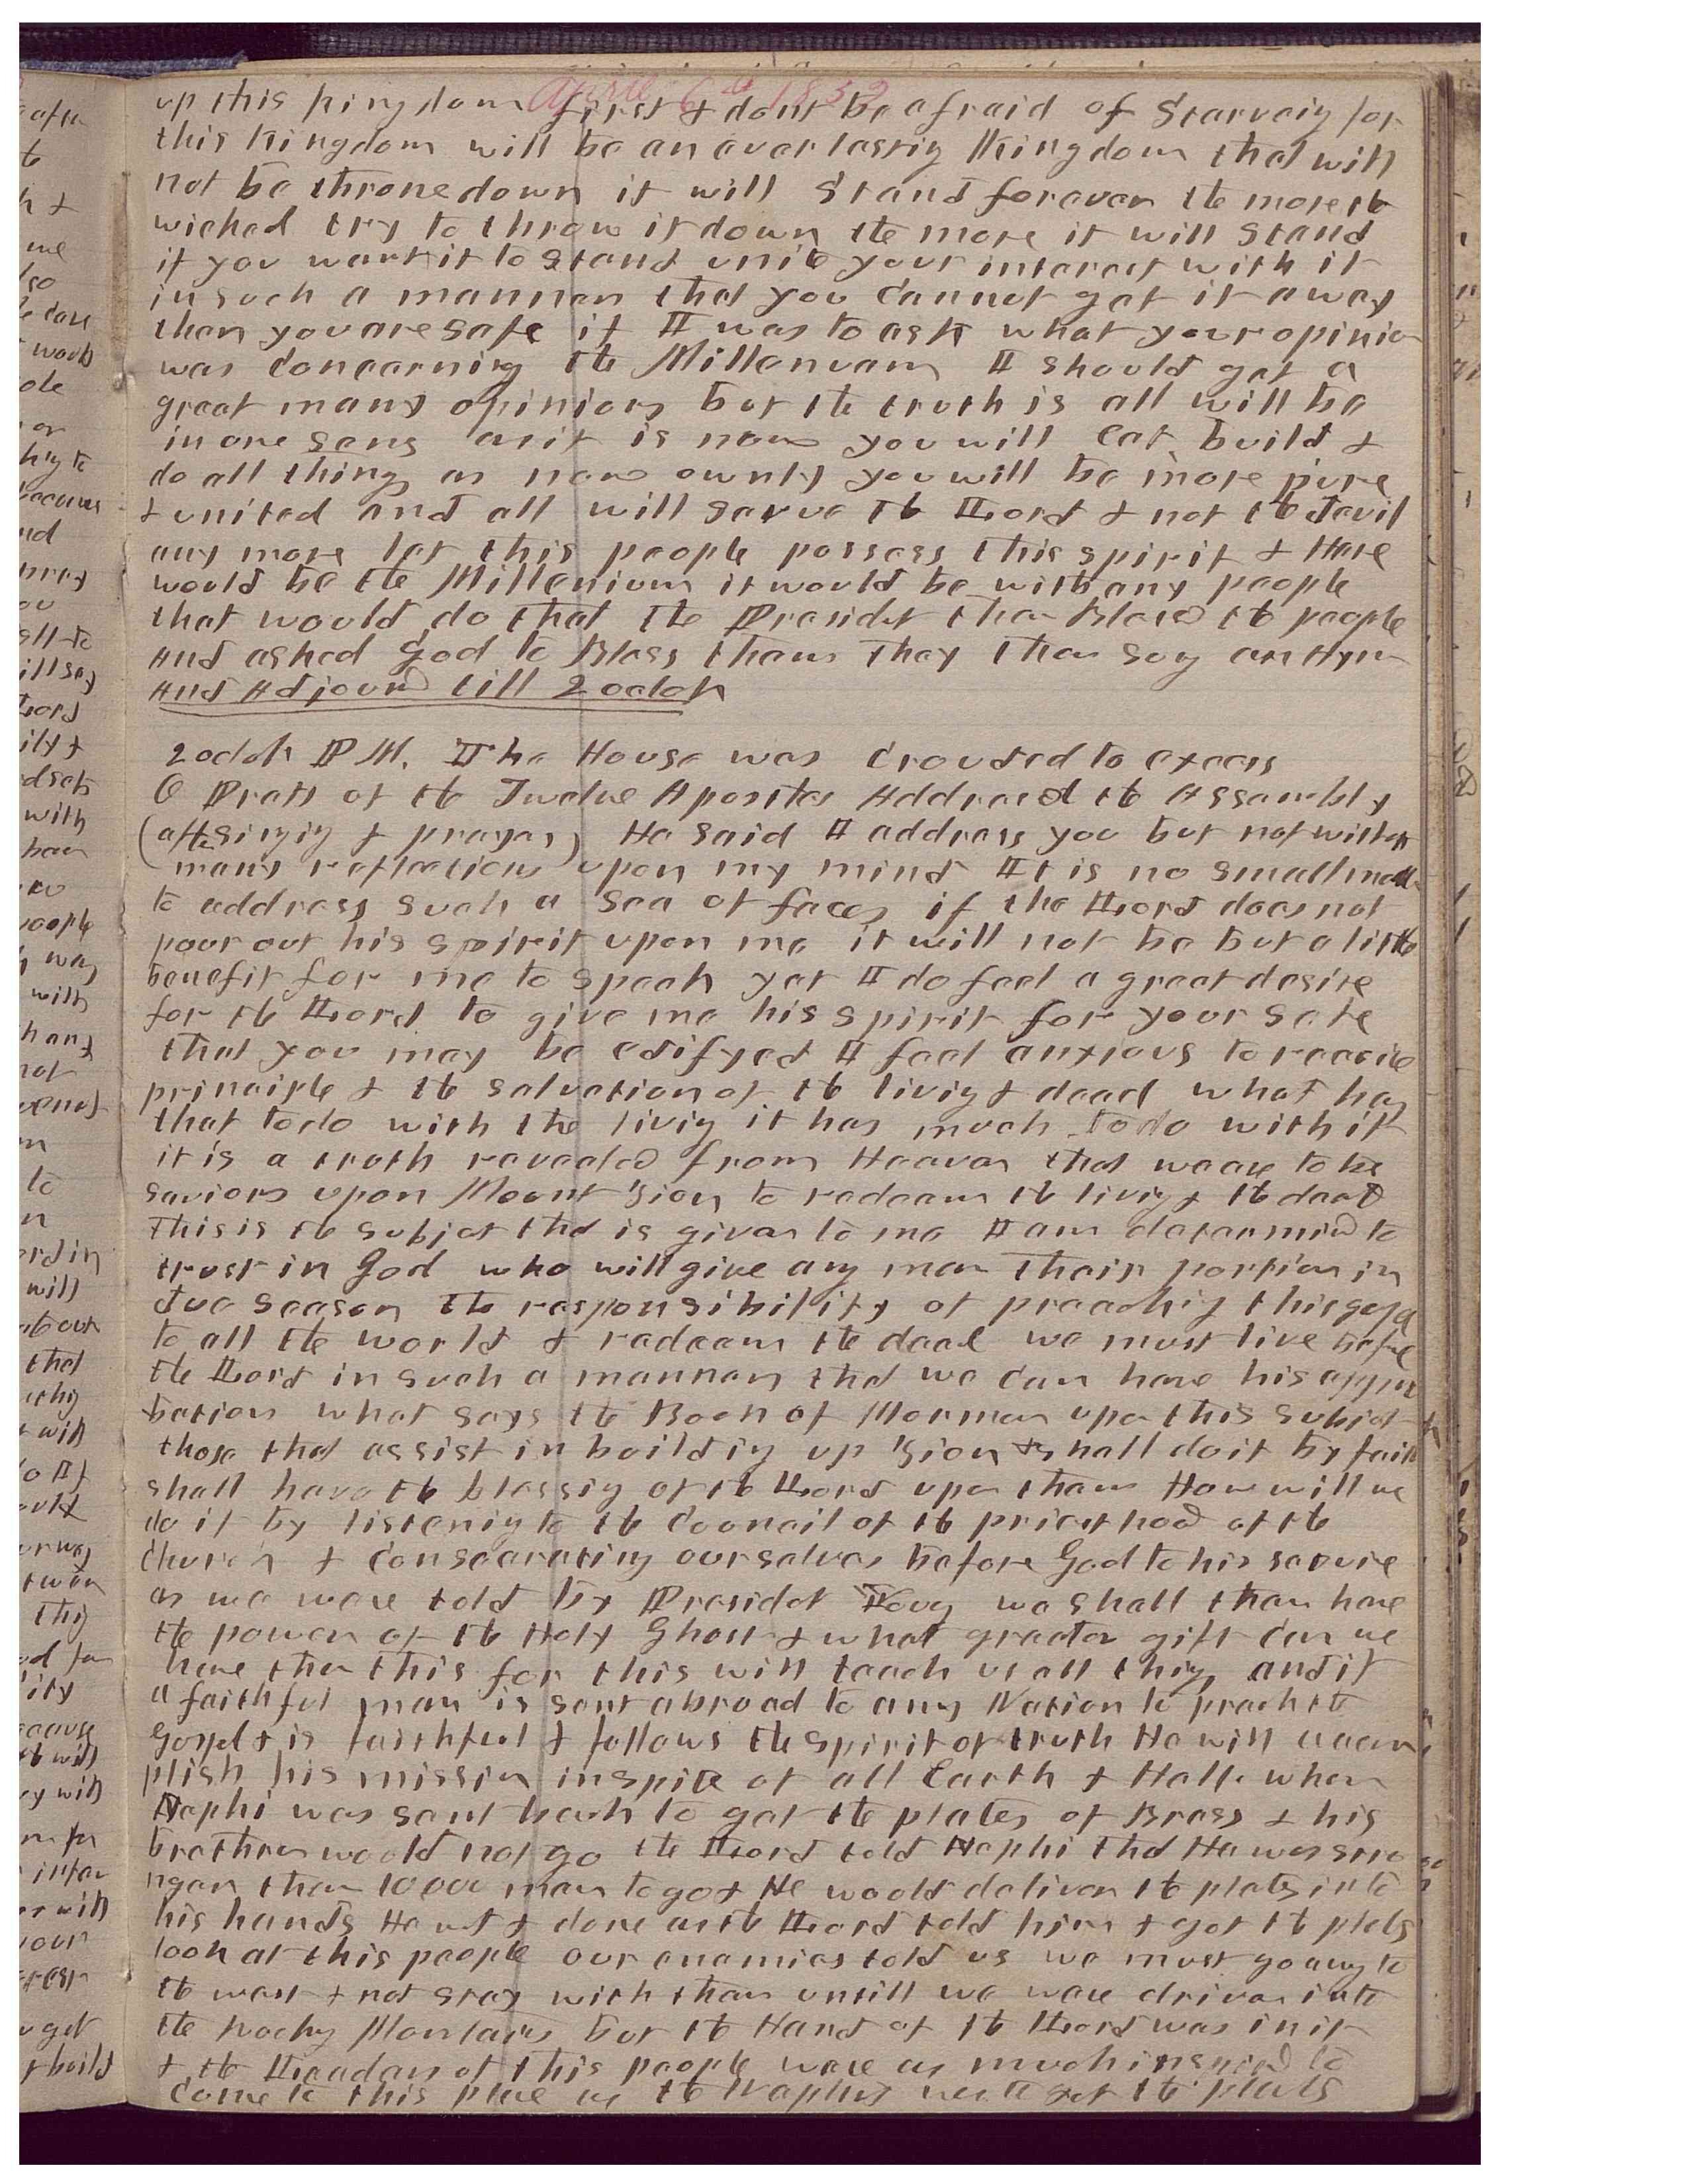 April 6th 1852
up this kingdom first & dont be afraid of Starveig for
this Kingdom will be an everlastig Kingdom that will
not be throne down it will Stand forever the more the
wicked try to throw it down the more it will Stand
if you want it to stand unite your interest with it
in such a manner that you cannot get it away
then you are safe if I was to ask what your opinion
was concerning the Millenuam I should get a
great many opinions but the truth is all will be
in one sens as it is now you will eat build &
do all things as now ownly you will be more pure
& united and all will serve the Lord & not the devil
any more let this people possess this spirit & Here
would be the Millenium it would be with any people
that would do that the Presidet then Blesed the people
And asked God to Bless them They then sog an Hym
And Adjournd till 2 oclok
2 oclok P M. The House was crouded to excess
O Pratt of the Twelve Apostles Addresed the Assembly
(after singig & prayer) He said I address you but not without
many reflections upon my mind It is no small matter
to address such a Sea of faces if the Lord does not
pour out his spirit upon me it will not be but a little
benefit for me to speak yet I do feel a great desire
for the Lord to give me his spirit for your sake
that you may be edifyed I feel anxious to receive
principle & the salvation of the livig & dead what has
that to do with the livig it has much to do with it
it is a truth reveeled from Heaven that we are to be
saviors upon Mount Zion to redeem the livig & the dead
This is the subjet that is given to me I am determind to
trust in God who will give any man their portion in
due season the responsibility of preachig this gospel
to all the world & redeem the dead we must live before
the Lord in such a manner that we can have his appro
bation what says the Book of Mormon upon this subjet
those that assist in buildig up Zion & shall do it by faith
shall have the blessig of the Lord upon them How will we
do it by listenig to the Council of the priesthood of the
Church & consecrating ourselves before God to his servise
as we were told by Presidet Young we shall then have
the power of the Holy Ghost & what greater gift can we
have then this for this will teach us all things and if
a faithful man is sent abroad to any Nation to preach the
Gospel & is faithful & follows the spirit of truth He will accom
plish his mission in spite of all Earth & Hell. when
Nephi was sent back to get the plates of Brass & his
brethren would not go the Lord told Nephi that He was stro
nger than 10000 men to go & He would deliver the plates into
his hands He went & done as the Lord told him & got the plates
look at this people our enemies told us we must go away to
the west & not stay with them untill we were driven into
the Rocky Mountains but the Hand of the Lord was in it
& the Leaders of this people were as much inspired to
Come to this place as the Nephis were to get the plates